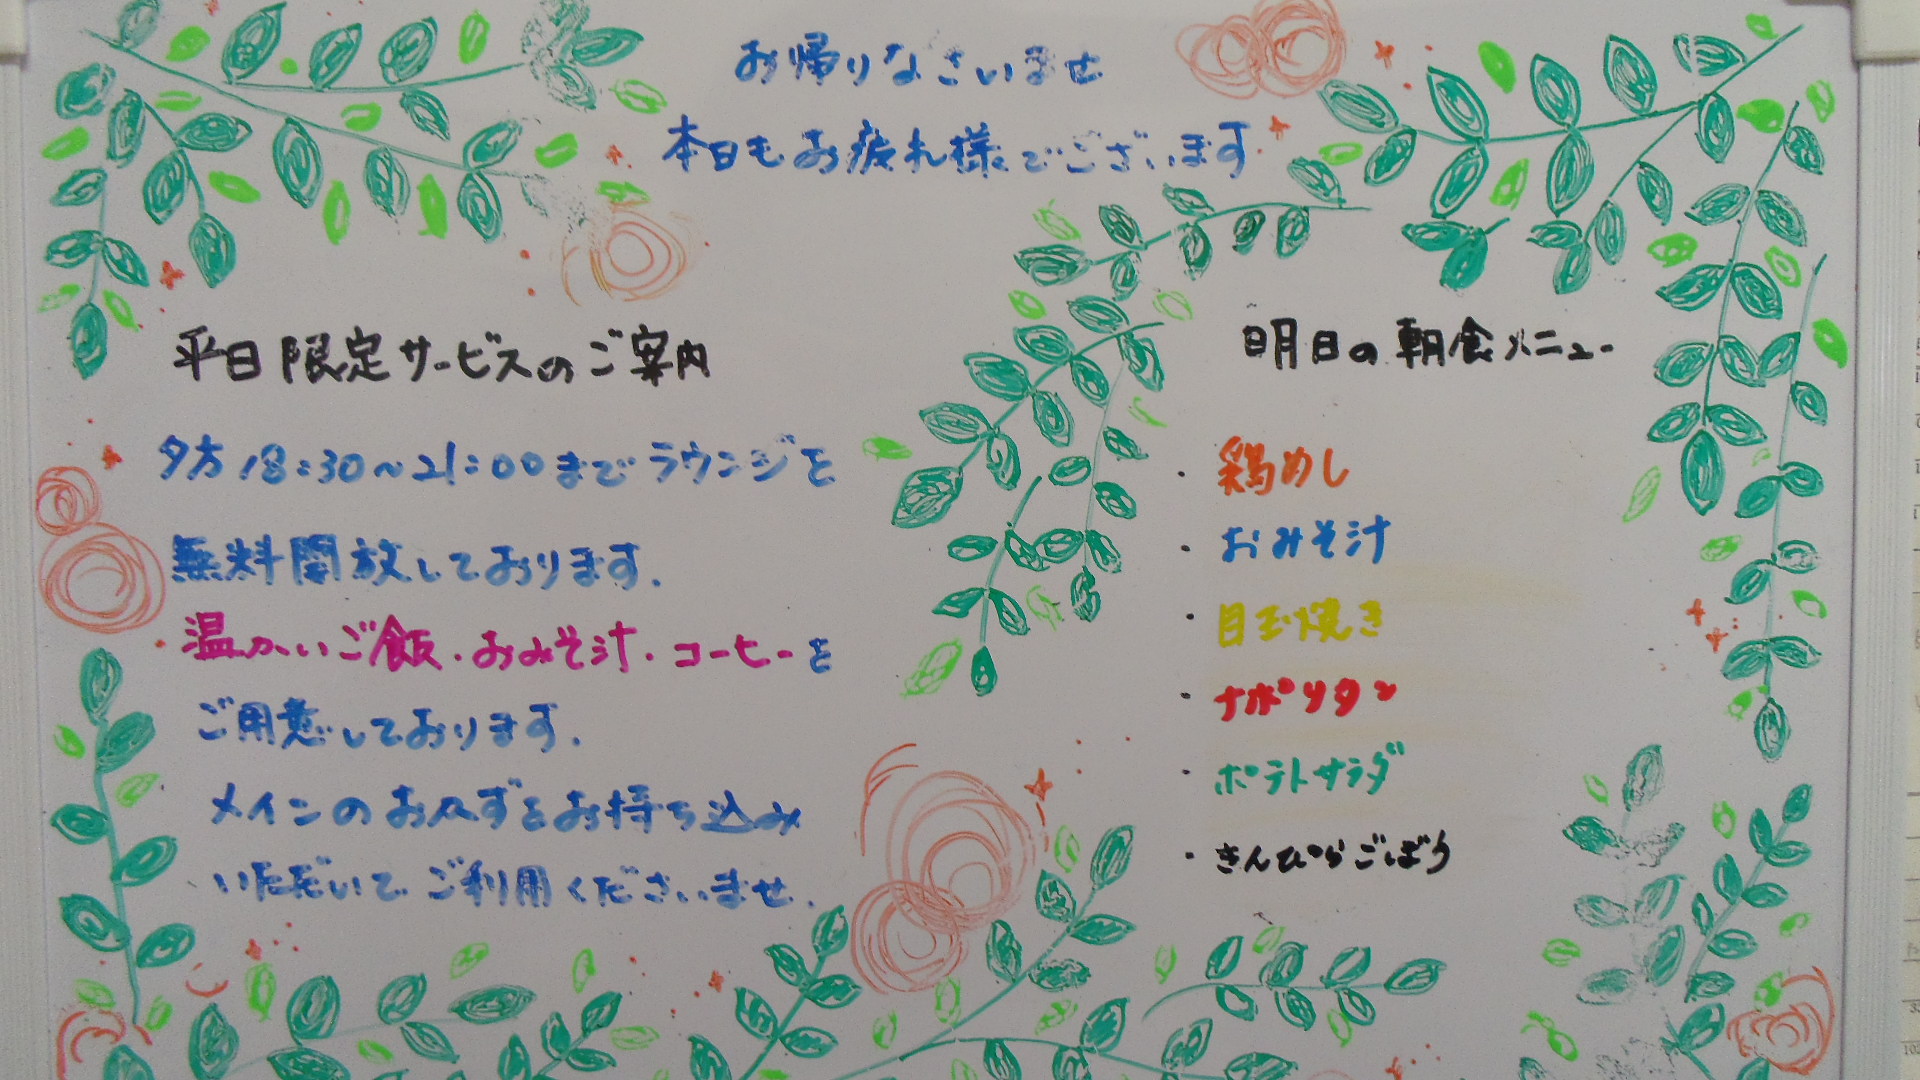 お帰りなさいませ
本日もお疲れ様でございます
平日限定サービスのご案内
夕方18:30～21:00までラウンジを
無料開放しております.
温かいご飯・おみそ汁・コーヒーを
ご用意しております.
メインのおかずをお持ち込み
いただいてご利用くださいませ.
明日の朝食メニュー
・鶏めし
・おみそ汁
・目玉焼き
・ナポリタン
・ポテトサラダ
・きんぴらごぼう